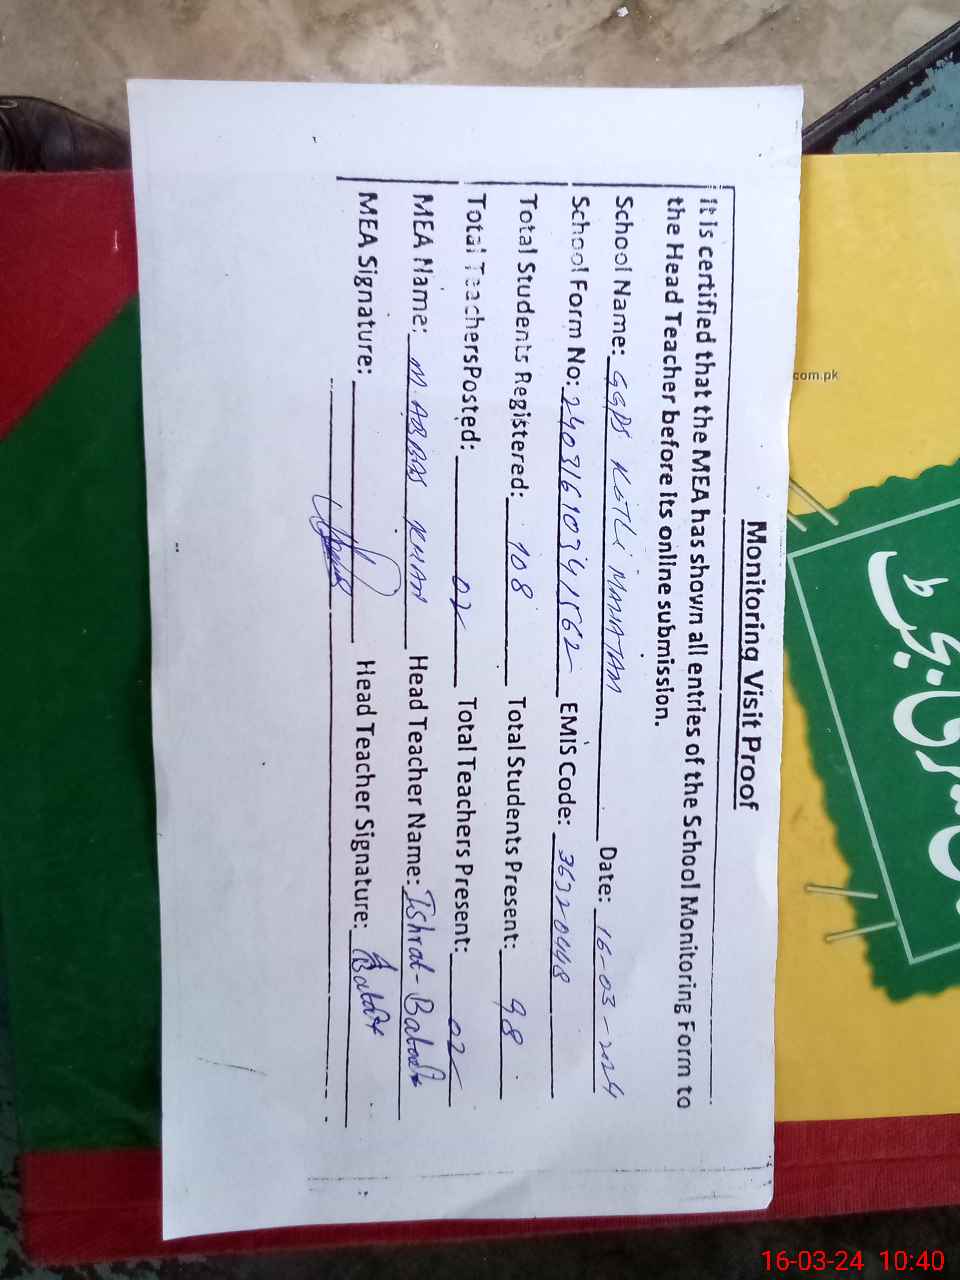 Monitoring Visit Proof
It is certified that the MEA has shown all entries of the School Monitoring Form to
the Head Teacher before its online submission.
School Name: GGPS KOTLI MAHATAM Date: 16-03-2024
School Form No: 24031610341562 EMIS Code: 36320448
Total Students Registered: 108 Total Students Present: 98
Total TeachersPosted: 02 Total Teachers Present: 02
MEA Name: M. ABBAS KHAN Head Teacher Name: Ishrat-
MEA Signature: Head Teacher Signature:
com.pk
16-03-24 10:40